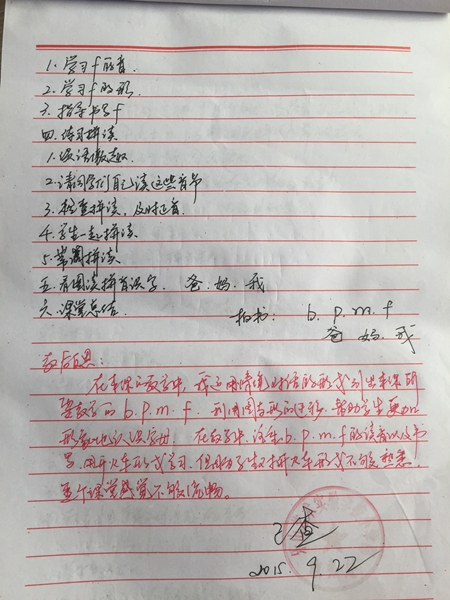 1. 学习f的音.
2. 学习f的形.
三. 指导书写f
四. 练习拼读
1. 谈话激趣
2. 请同学们自己读这些音节
3. 检查拼读，及时正音.
4. 学生一起拼读.
5. 常规拼读.
五. 看图读拼音识字. 爸. 妈. 我
六. 课堂总结.
板书: b. p. m. f
爸 妈 我
教后思:
在本课的教学中, 我运用情境对话的形式引出本课所
要教学的 b. p. m. f. 利用图与形的迁移, 帮助学生更加
形象地认识字母. 在教学中, 注重b. p. m. f的读音以及书
写. 用开火车形式学习. 但由于学生对开火车形式不够熟悉.
整个课堂感觉不够流畅。
已查
2015. 9. 22